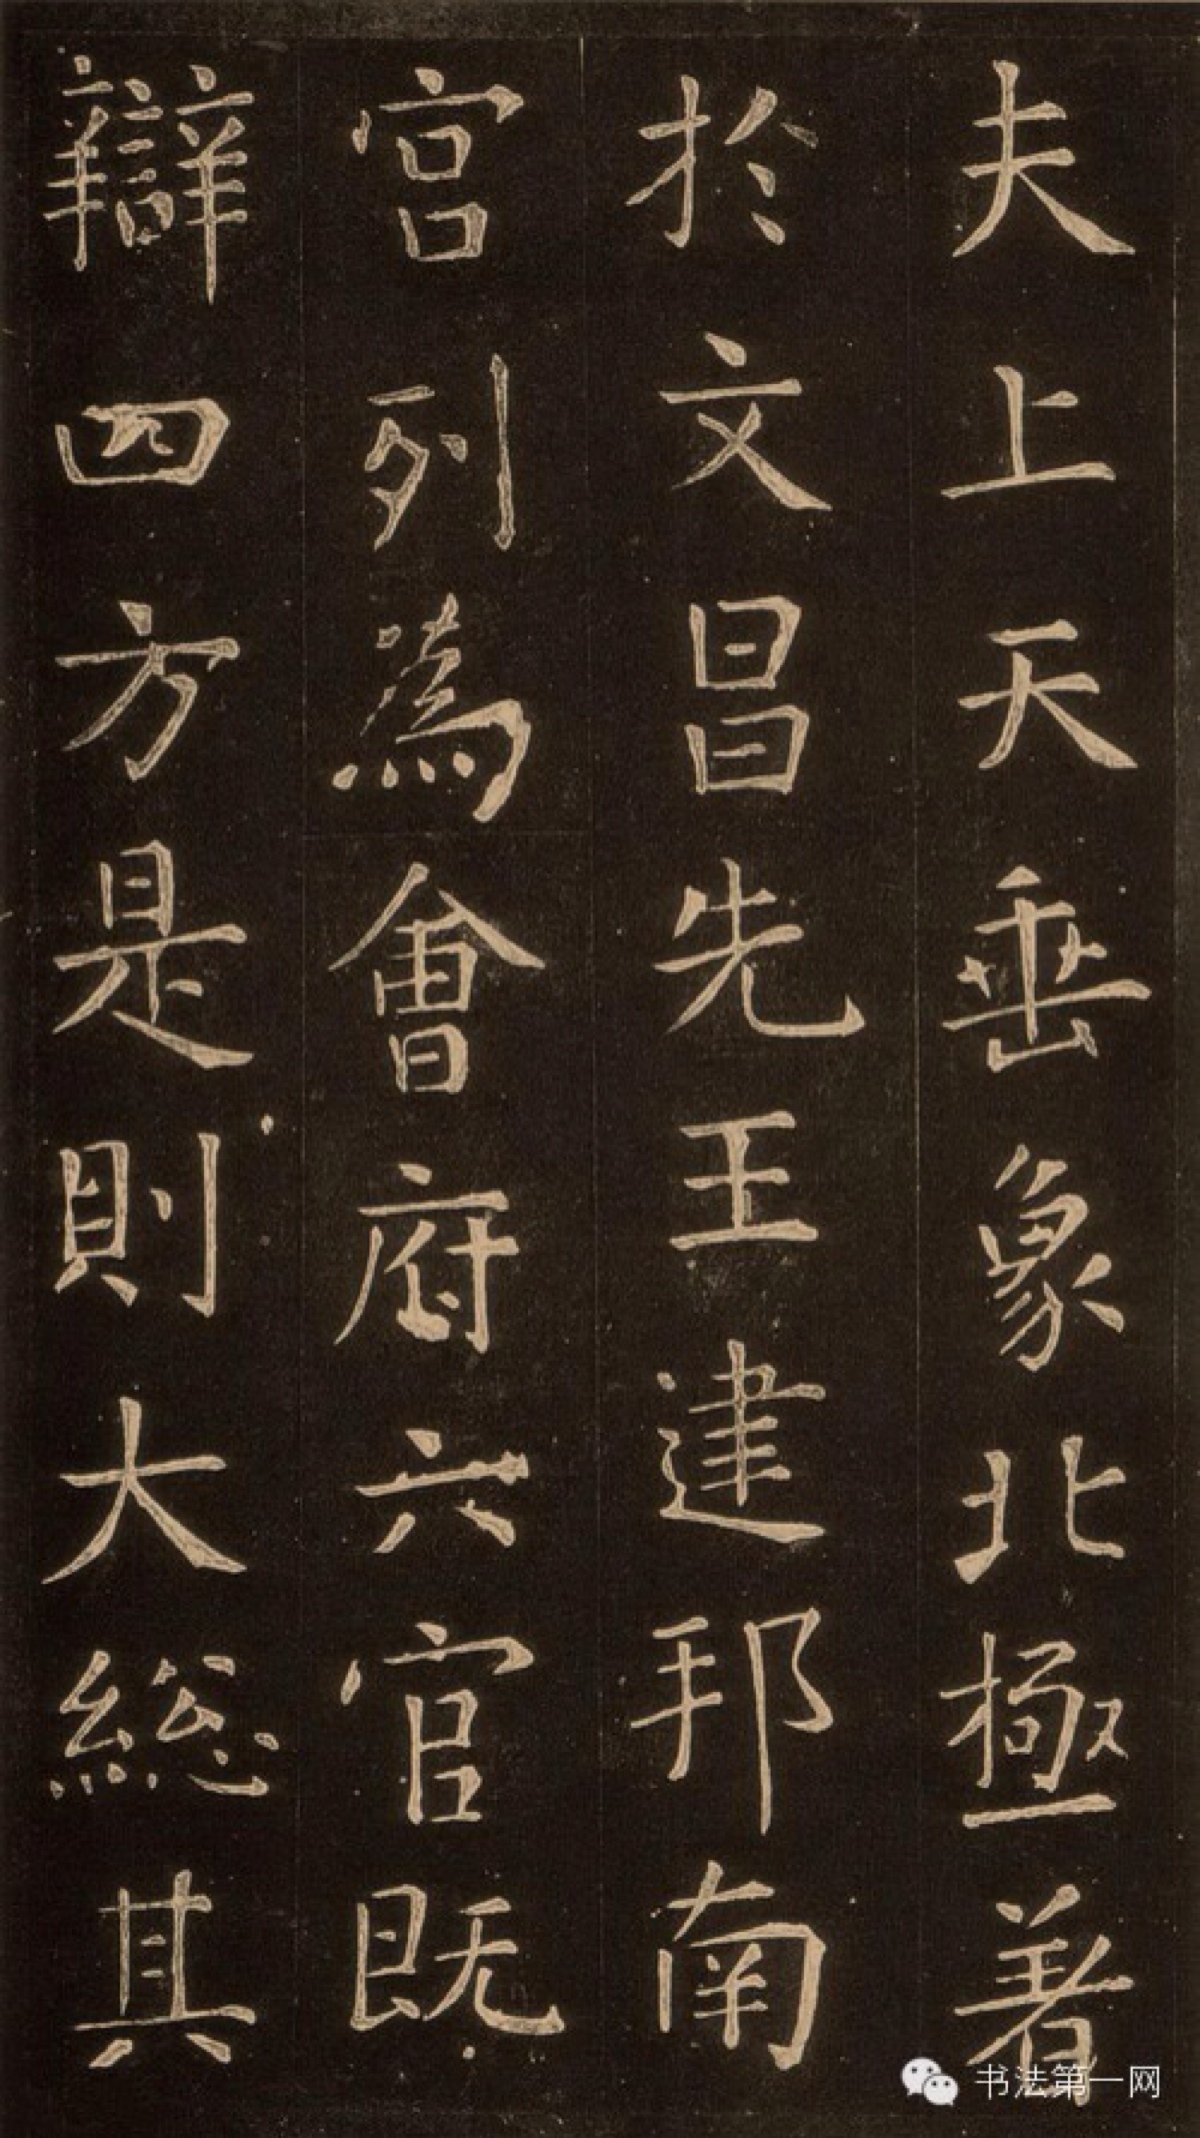 夫上天垂象北極著
於文昌先王建邦南
宮列為會府六官既
辯四方是則大総其
书法第一网